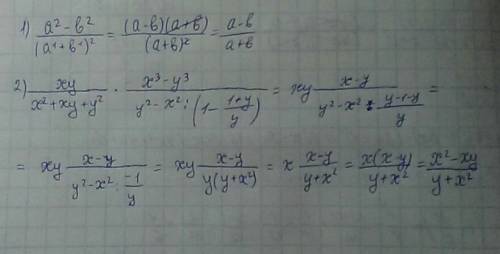 1) (a² - в²)/(a¹ + в¹)² = (a-в)(a+в)/(a+в)² = (a-в)/(a+в)
2) xy/(x²+xy+y²) · (x³-y³)/(y²-x² : (1 - (1+y)/y)) = xy (x-y)/(y²-x² : (y-1-y)/y) =
= xy (x-y)/(y²-x² : (-1)/y) = xy (x-y)/(y(y+x²)) = x (x-y)/(y+x²) = x(x-y)/(y+x²) = (x²-xy)/(y+x²)